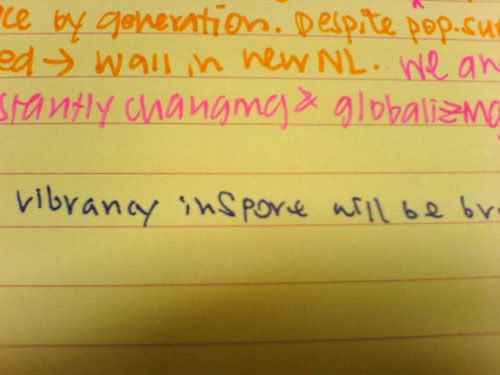 ce by generation. Despite pop. sur
ed → wall in new NL. we an
stantly changing & globalizing
vibrancy in Spore will be br